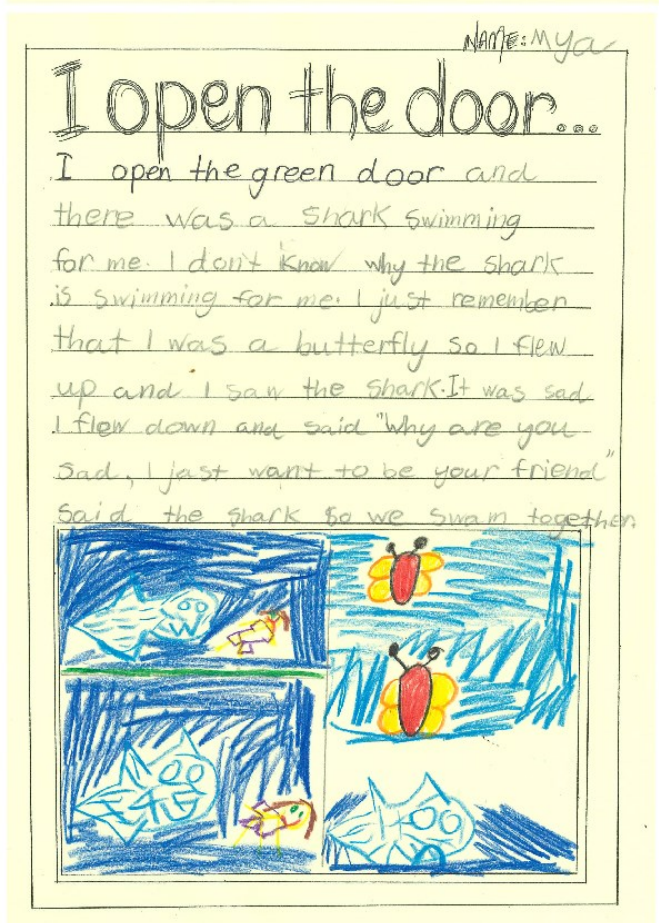 NAME: Mya
I open the door...
I open the green door and
there was a shark swimming
for me. I don't know why the shark
is swimming for me. I just remember
that I was a butterfly so I flew
up and I saw the shark. It was sad
I flew down and said "Why are you
sad, I jast want to be your friend"
said the shark so we swam together.